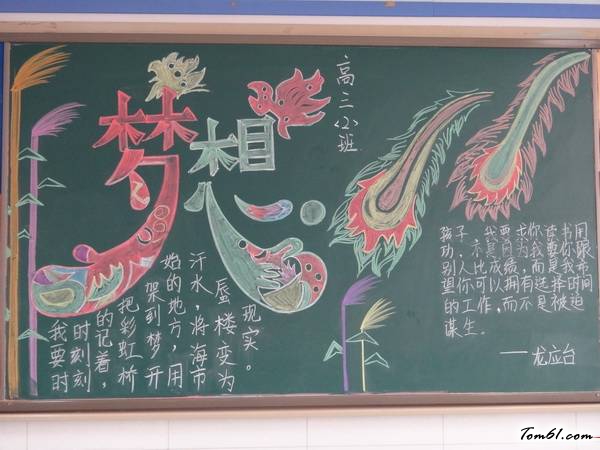 梦想
高三班
我要时
时刻刻
的记着，
把彩虹桥
架到梦开
始的地方，用
汗水，将海市
蜃楼变为
现实。
孩子，我要求你读书用
功，不是因为我要你跟
别人比成绩，而是我希
望你可以拥有选择时间
的工作，而不是被迫
谋生。
——龙应台
Tom61.com